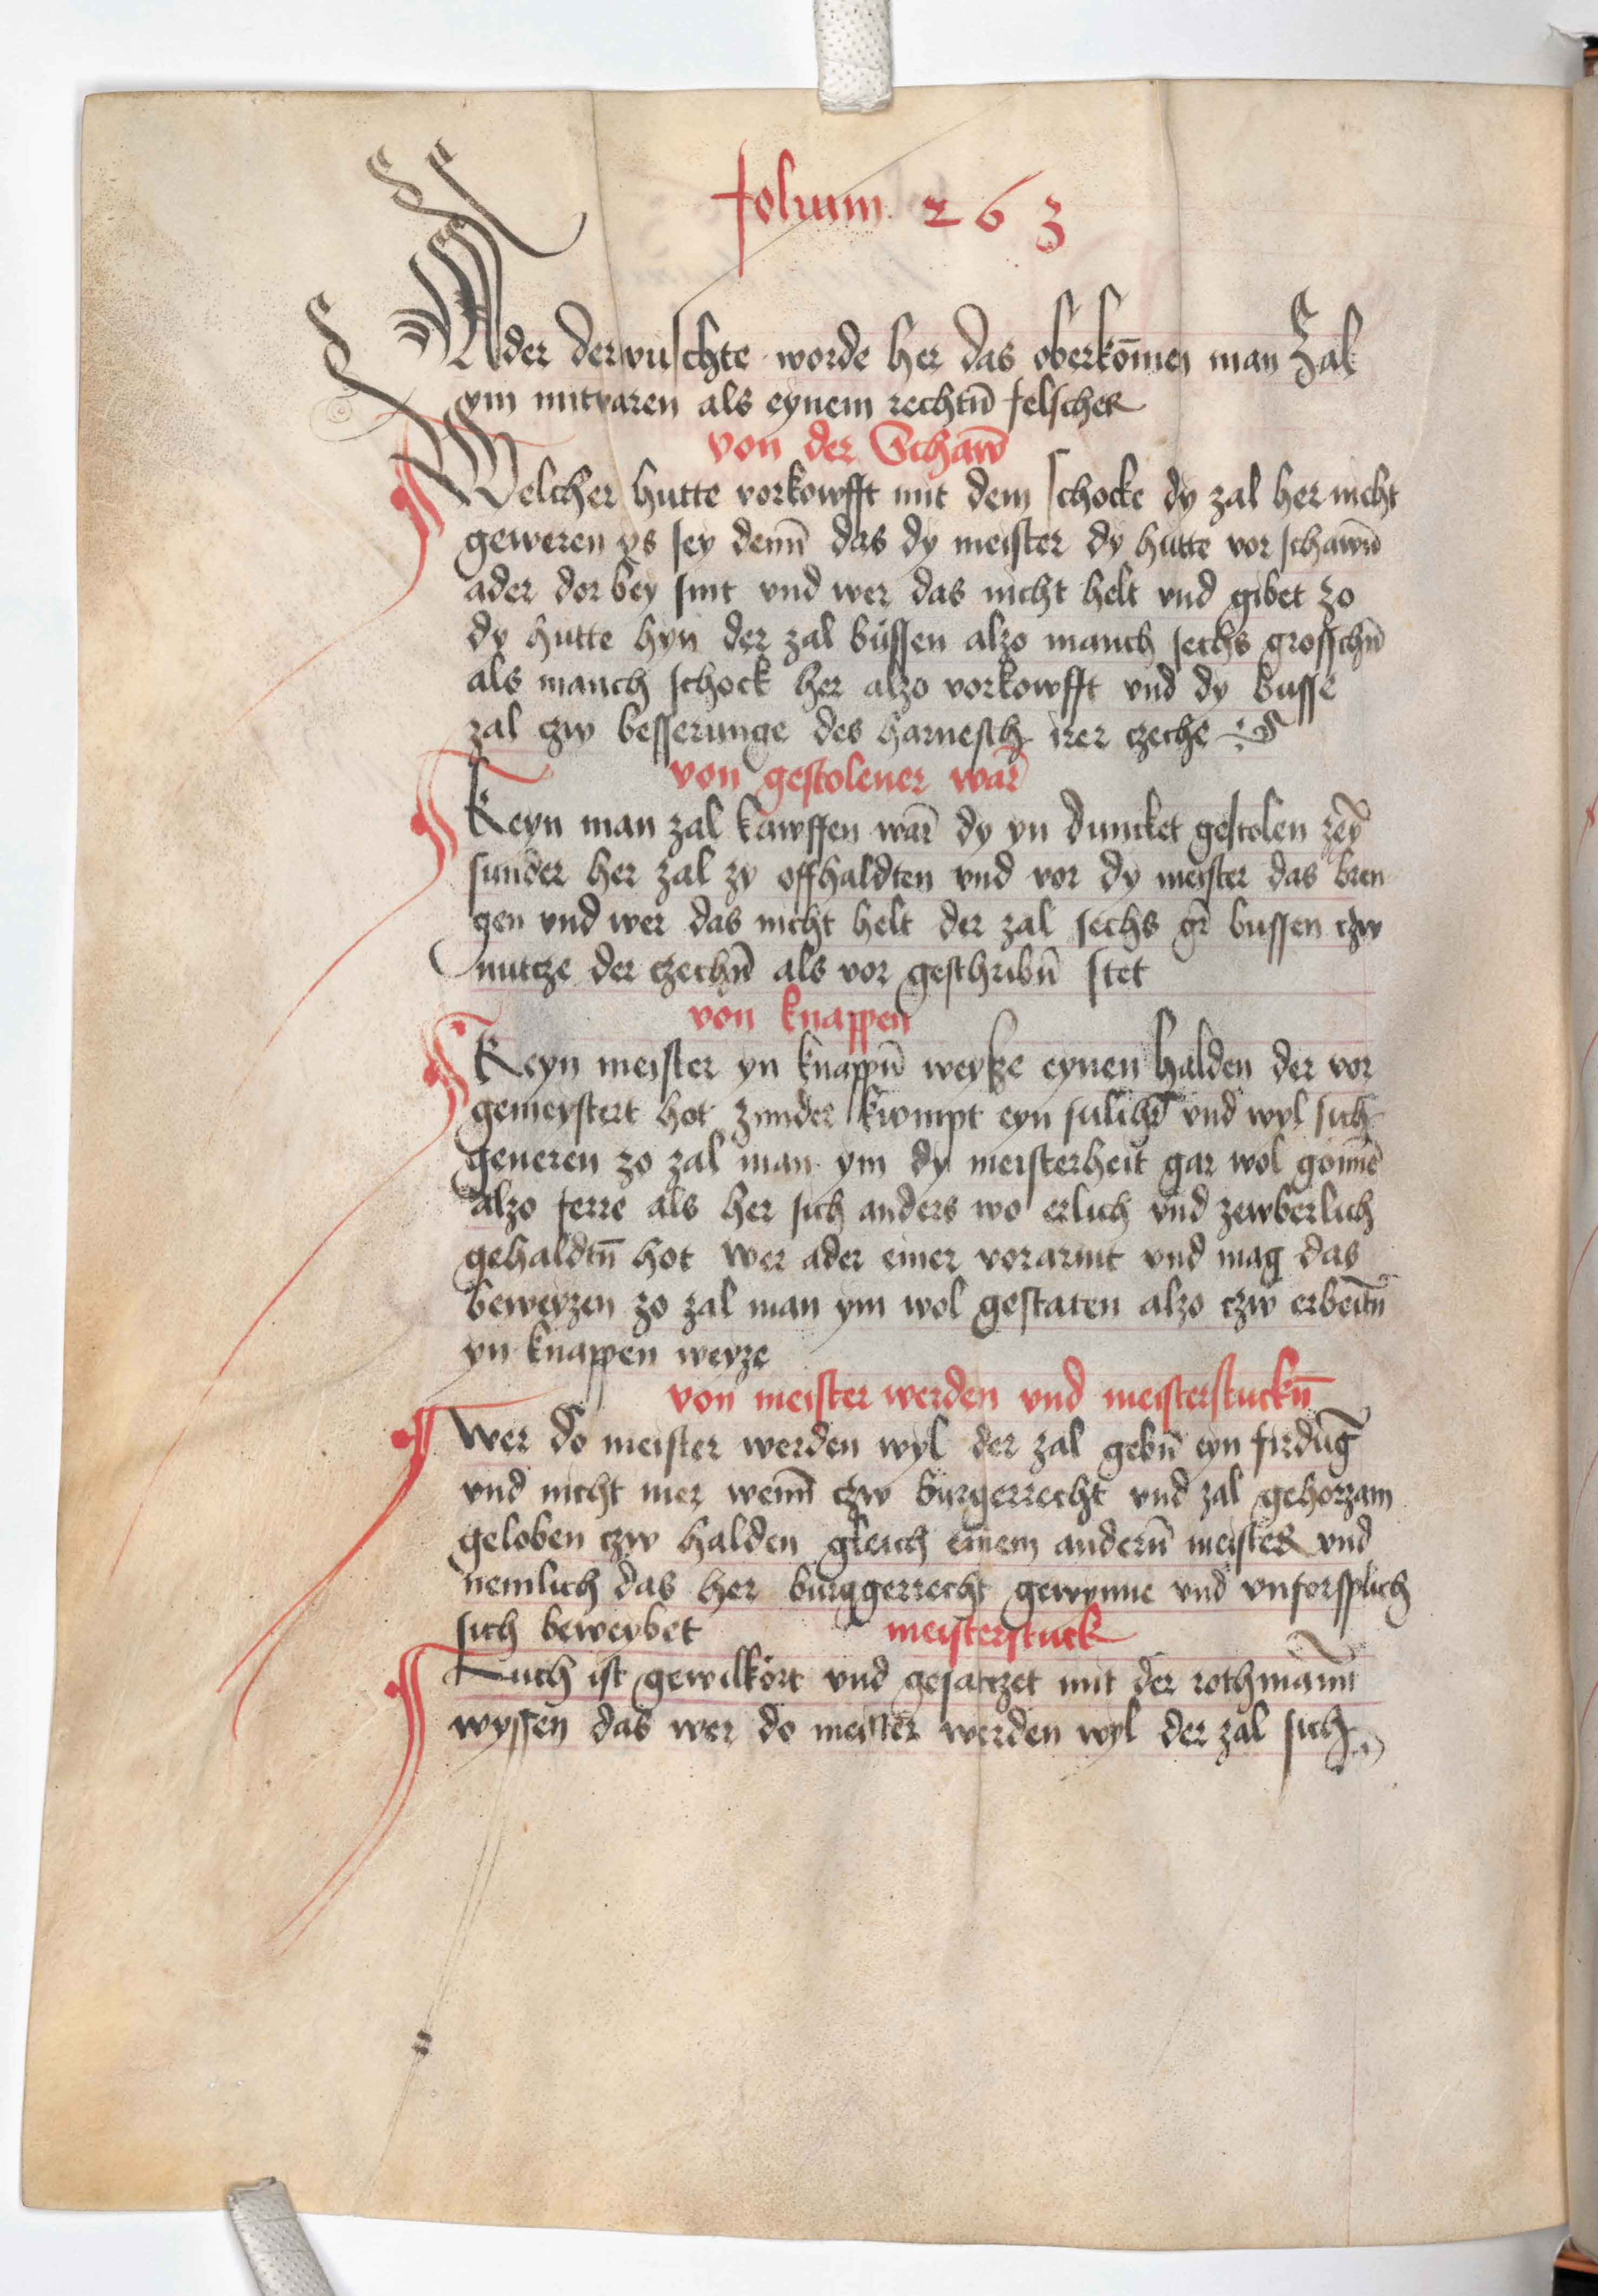 folium 263
Ader derwuschte worde her das oberkōmen man zal
ym mitvaren als eynem rechtn̄ felscher
von der Schaw̄
Welcher hutte vorkowfft mit dem schocke dy zal her nicht
geweren ys sey denn̄ das dy meister dy hutte vor schawn̄
ader dor bey sint vnd wer das nicht helt vnd gibet zo
dy hutte hyn der zal bussen alzo manch sechs grosschn̄
als manch schock her alzo vorkowfft vnd dy busse
zal czw besserunge des harnesch irer czeche
von gestolener war̄
Keyn man zal kawffen war̄ dy yn duncket gestolen zey
sunder her zal zy offhaldten vnd vor dy meister das bren
gen vnd wer das nicht helt der zal sechs gr̄ bussen czw
nutcze der czechn̄ als vor geschribn̄ stet
von knappen
Keyn meister yn knappn̄ weyße eynen halden der vor
gemeystert hot zunder kwmpt eyn sulchr̄ vnd wyl sich
generen zo zal man ym dy meisterheit gar wol gonnē
alzo ferre als her sich anders wo erlich vnd zewberlich
gehaldtn̄ hot wer ader einer vorarmt vnd mag das
beweyzen zo zal man ym wol gestaten alzo czw erbeitn̄
yn knappen weyze
von meister werden vnd meisterstuckn̄
Wer do meister werden wyl der zal gebn̄ eyn firdūg
vnd nicht mer wenn̄ czw burgerrecht vnd zal gehorzam
geloben czw halden gleich einem andern̄ meister vnd
nemlich das her burggerrecht gewynne vnd vnforsplich
sich beweybet
meisterstuck
Auch ist gewilkort vnd gesatczet mit der rothmann̄
wyssen das wer do meister werden wyl der zal sich